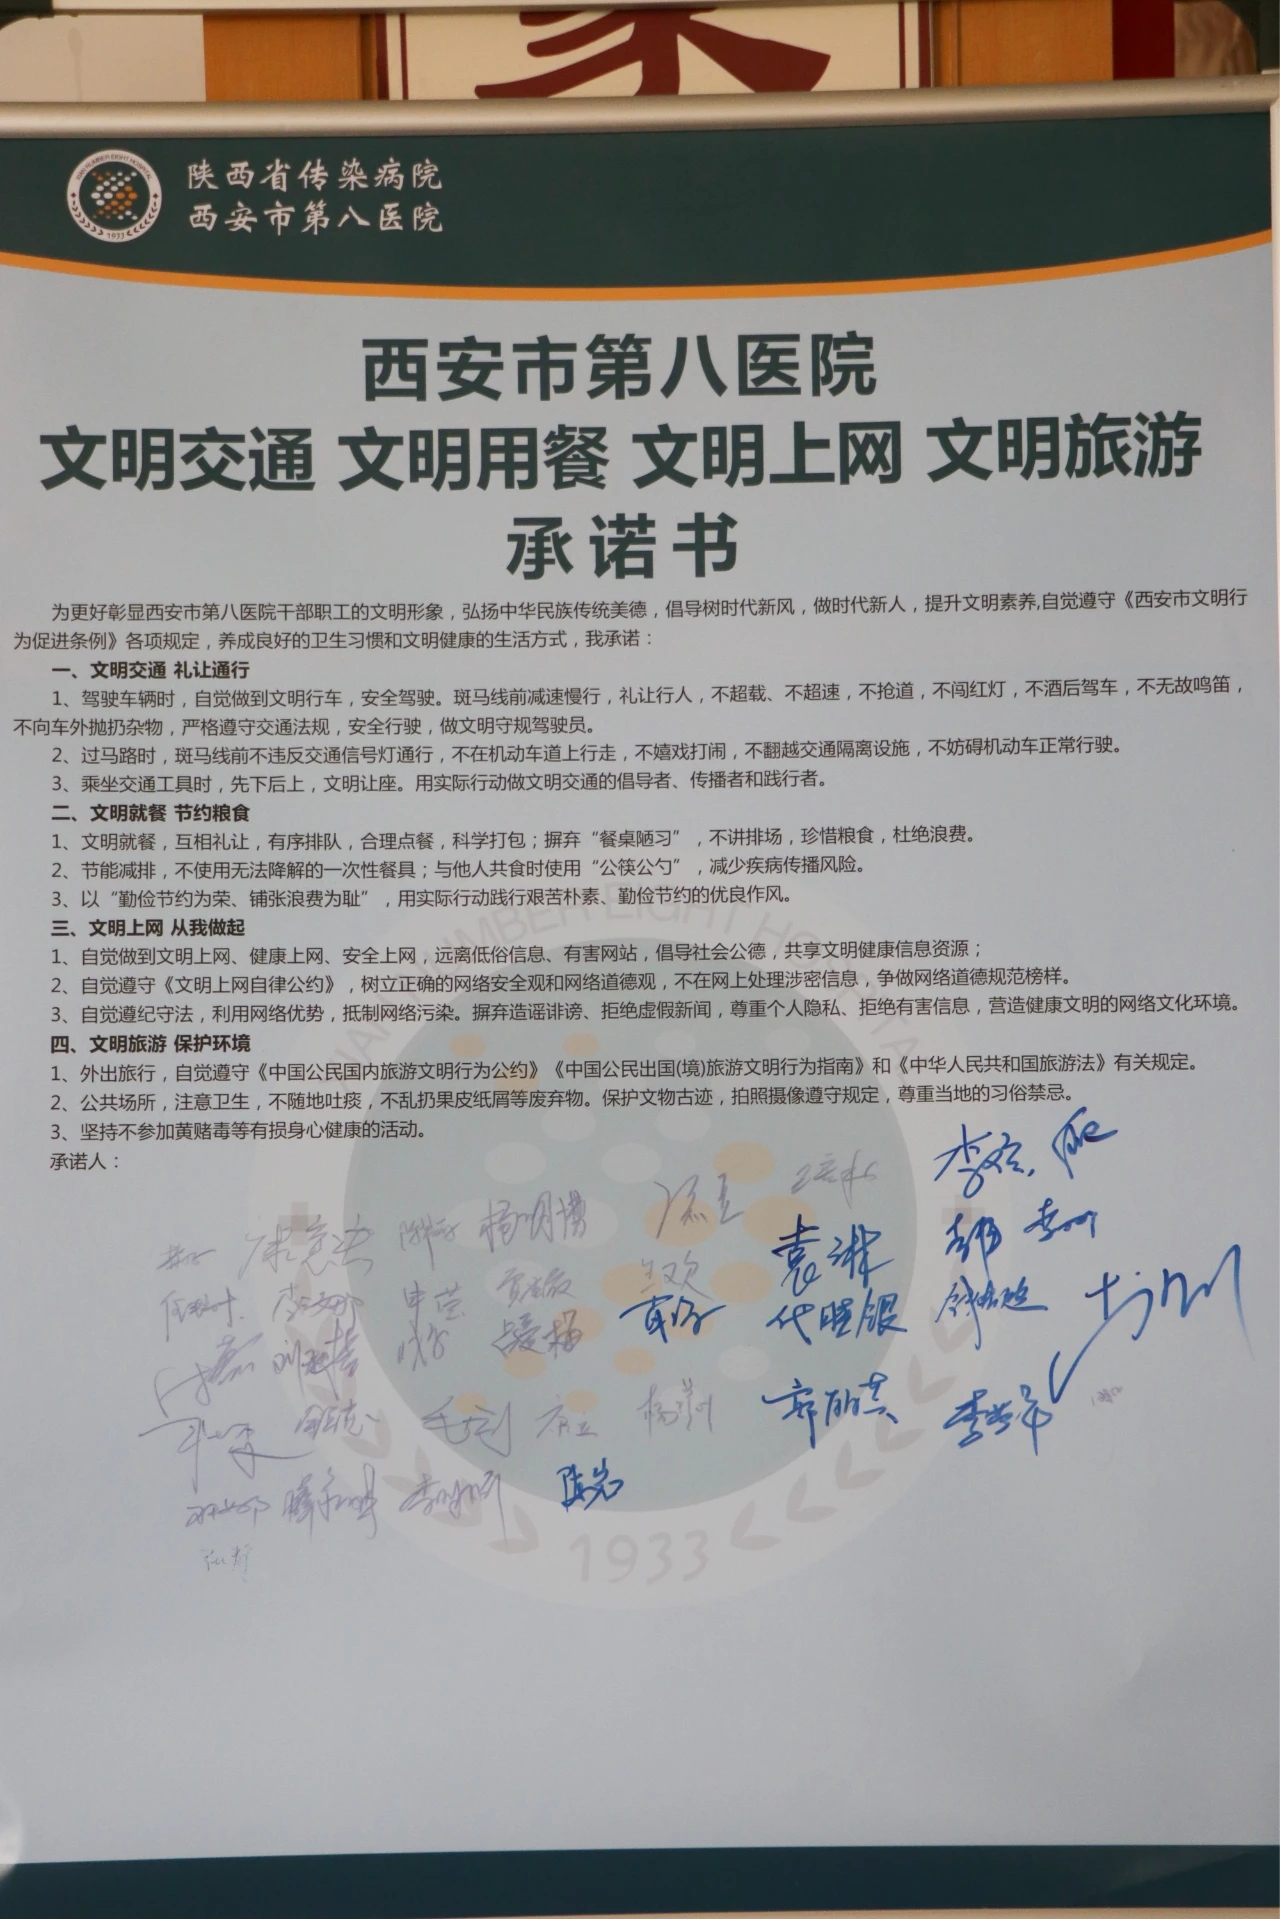 陕西省传染病院
西安市第八医院
1933
西安市第八医院
文明交通 文明用餐 文明上网 文明旅游
承诺书
为更好彰显西安市第八医院干部职工的文明形象，弘扬中华民族传统美德，倡导树时代新风，做时代新人，提升文明素养,自觉遵守《西安市文明行
为促进条例》各项规定，养成良好的卫生习惯和文明健康的生活方式，我承诺：
一、文明交通 礼让通行
1、驾驶车辆时，自觉做到文明行车，安全驾驶。斑马线前减速慢行，礼让行人，不超载、不超速，不抢道，不闯红灯，不酒后驾车，不无故鸣笛，
不向车外抛扔杂物，严格遵守交通法规，安全行驶，做文明守规驾驶员。
2、过马路时，斑马线前不违反交通信号灯通行，不在机动车道上行走，不嬉戏打闹，不翻越交通隔离设施，不妨碍机动车正常行驶。
3、乘坐交通工具时，先下后上，文明让座。用实际行动做文明交通的倡导者、传播者和践行者。
二、文明就餐 节约粮食
1、文明就餐，互相礼让，有序排队，合理点餐，科学打包；摒弃“餐桌陋习”，不讲排场，珍惜粮食，杜绝浪费。
2、节能减排，不使用无法降解的一次性餐具；与他人共食时使用“公筷公勺”，减少疾病传播风险。
3、以“勤俭节约为荣、铺张浪费为耻”，用实际行动践行艰苦朴素、勤俭节约的优良作风。
三、文明上网 从我做起
1、自觉做到文明上网、健康上网、安全上网，远离低俗信息、有害网站，倡导社会公德，共享文明健康信息资源；
2、自觉遵守《文明上网自律公约》，树立正确的网络安全观和网络道德观，不在网上处理涉密信息，争做网络道德规范榜样。
3、自觉遵纪守法，利用网络优势，抵制网络污染。摒弃造谣诽谤、拒绝虚假新闻，尊重个人隐私、拒绝有害信息，营造健康文明的网络文化环境。
四、文明旅游 保护环境
1、外出旅行，自觉遵守《中国公民国内旅游文明行为公约》《中国公民出国(境)旅游文明行为指南》和《中华人民共和国旅游法》有关规定。
2、公共场所，注意卫生，不随地吐痰，不乱扔果皮纸屑等废弃物。保护文物古迹，拍照摄像遵守规定，尊重当地的习俗禁忌。
3、坚持不参加黄赌毒等有损身心健康的活动。
承诺人：
杨明博
袁淋
毛剑
1933